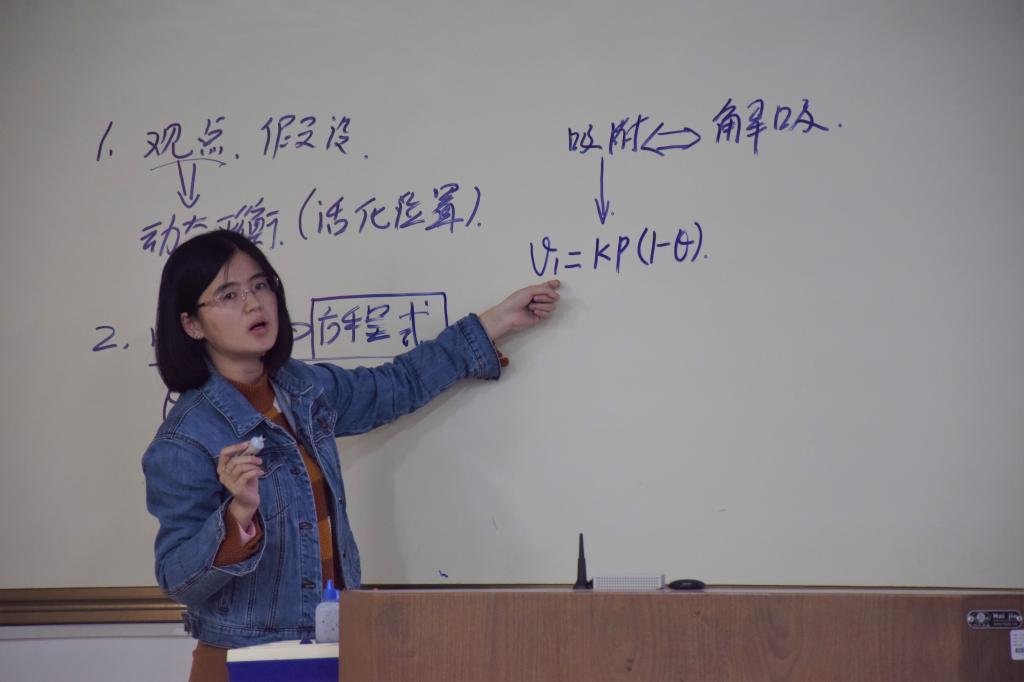 1. 观点、假设.
动态平衡.(活化位置).
2.
方程式
吸附⇔解吸.
↓
v₁=kp(1-θ).
Mai Jin